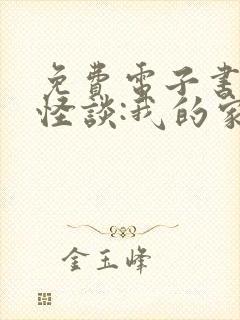 免費電子書
怪談:我的家
金玉峰